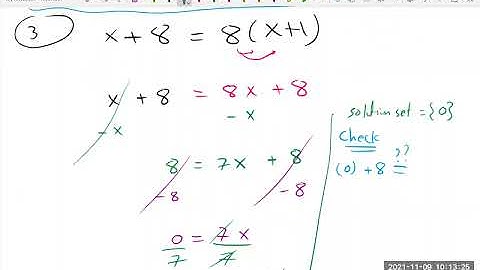 3 x + 8 = 8(x+1)
x + 8 = 8x + 8
- x - x
8 = 7x + 8
-8 -8
0 = 7x
7 7
solution set = {0}
Check
(0) + 8 = ??
2021-11-09 10:13:25